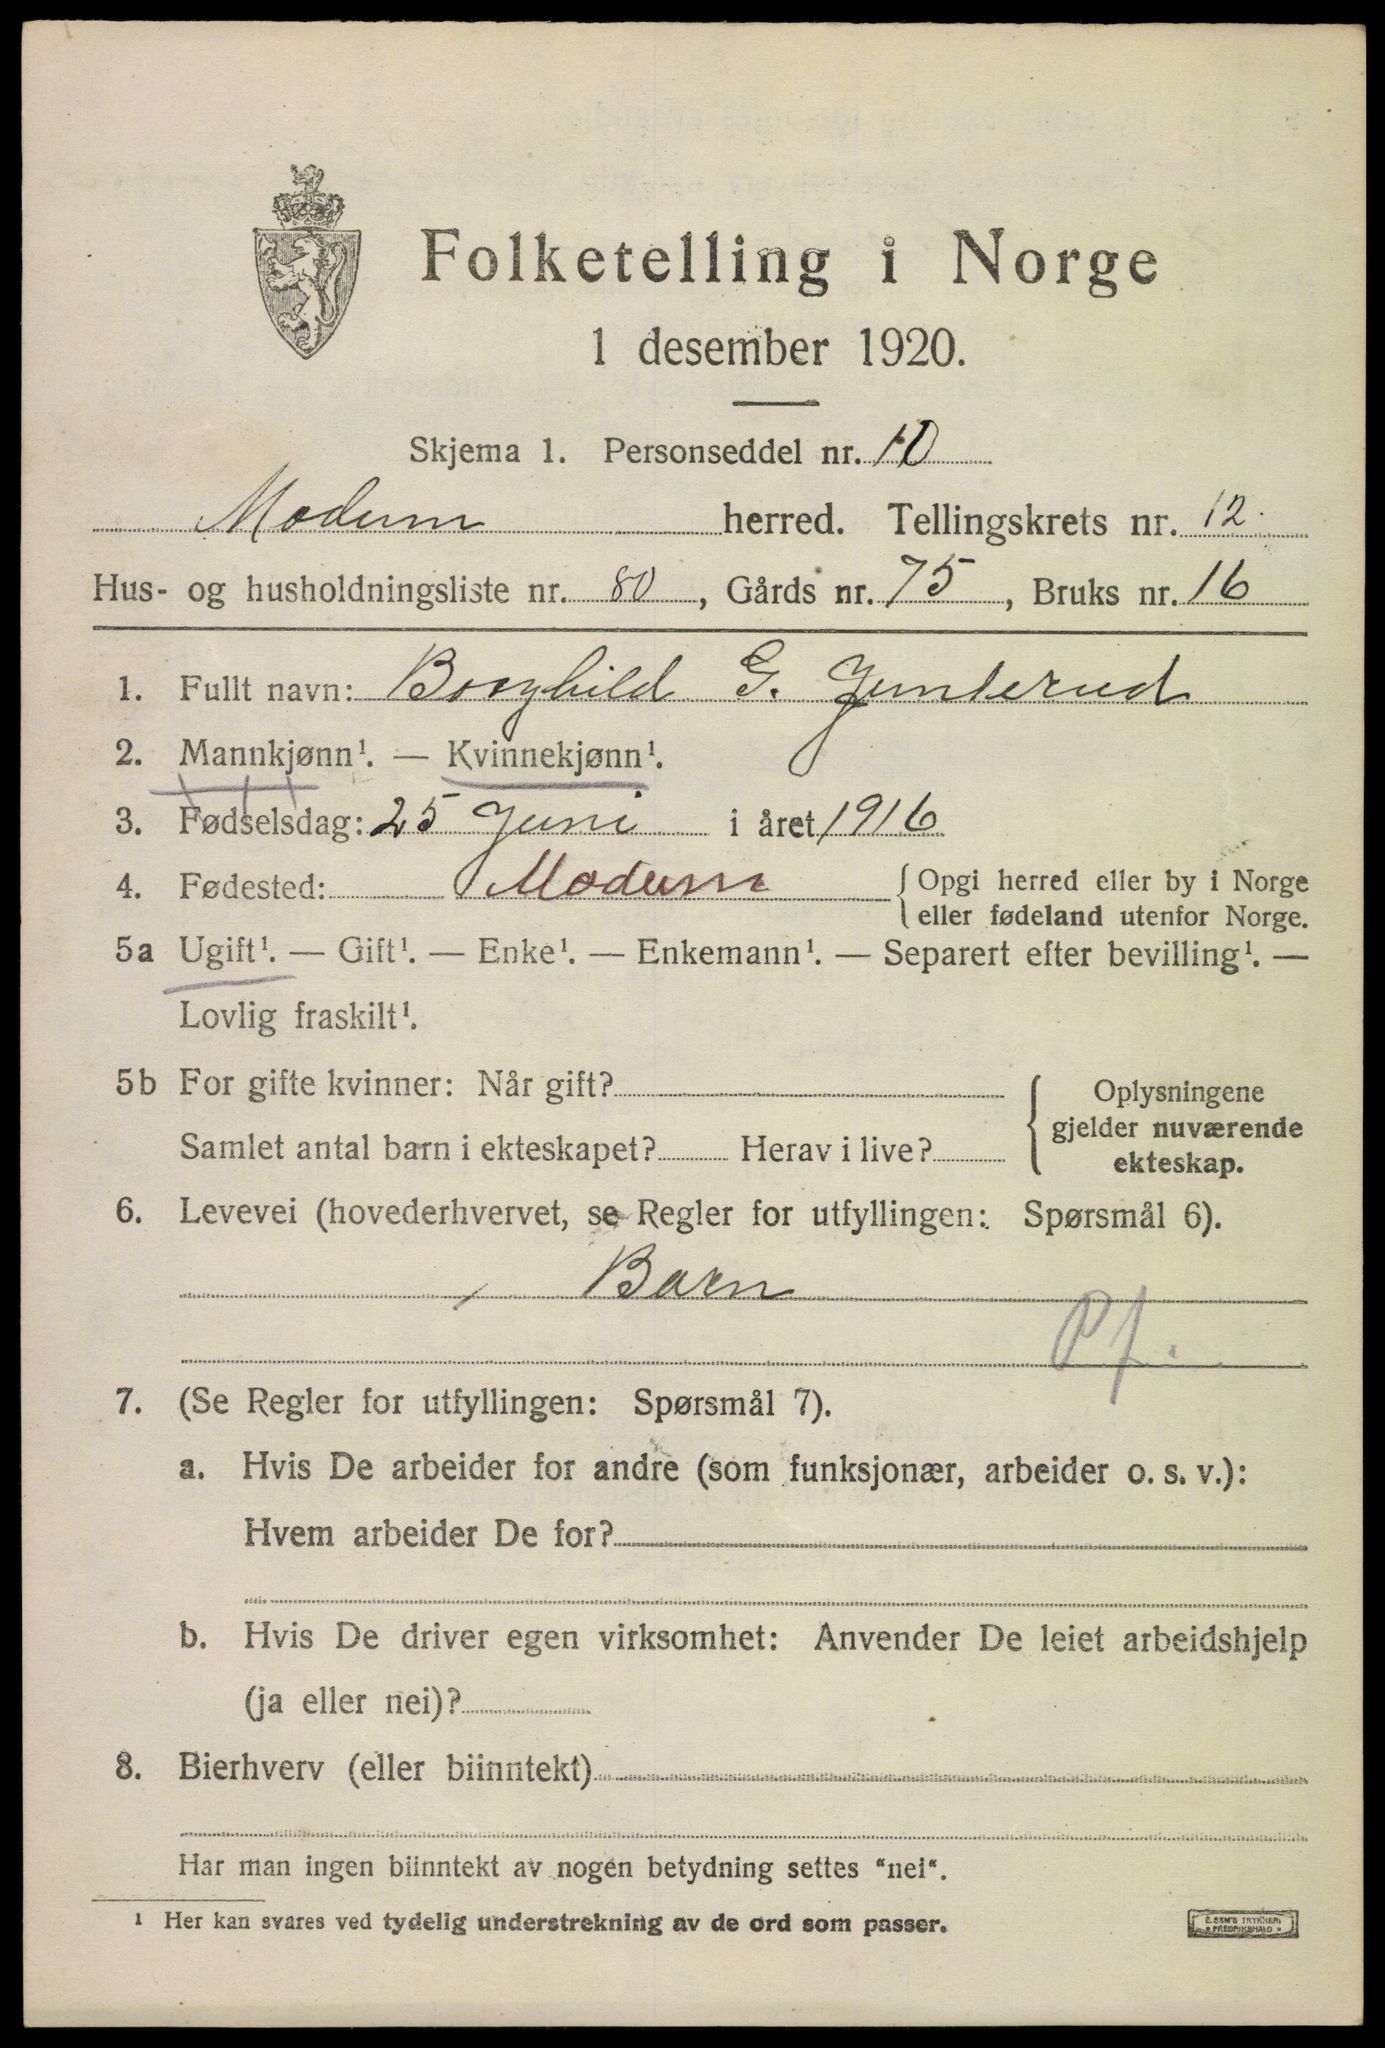 Folketelling i Norge
1 desember 1920.
Skjema 1. Personseddel nr. 10
Modum herred. Tellingskrets nr. 12.
Hus- og husholdningsliste nr. 80, Gårds nr. 75, Bruks nr. 16
1. Fullt navn: Borghild G.
2. Mannkjønn¹. — Kvinnekjønn¹.
3. Fødselsdag: 25 Juni i året 1916
4. Fødested: Modum { Opgi herred eller by i Norge
eller fødeland utenfor Norge.
5a Ugift¹. — Gift¹. — Enke¹. — Enkemann¹. — Separert efter bevilling¹. —
Lovlig fraskilt¹.
5b For gifte kvinner: Når gift?
Samlet antal barn i ekteskapet? Herav i live?
{ Oplysningene
gjelder nuværende
ekteskap.
6. Levevei (hovederhvervet, se Regler for utfyllingen: Spørsmål 6).
Barn
Pf.
7. (Se Regler for utfyllingen: Spørsmål 7).
a. Hvis De arbeider for andre (som funksjonær, arbeider o. s. v.):
Hvem arbeider De for?
b. Hvis De driver egen virksomhet: Anvender De leiet arbeidshjelp
(ja eller nei)?
8. Bierhverv (eller biinntekt)
Har man ingen biinntekt av nogen betydning settes "nei".
¹ Her kan svares ved tydelig understrekning av de ord som passer.
E. SEM'S TRYKKERI
FREDRIKSHALD